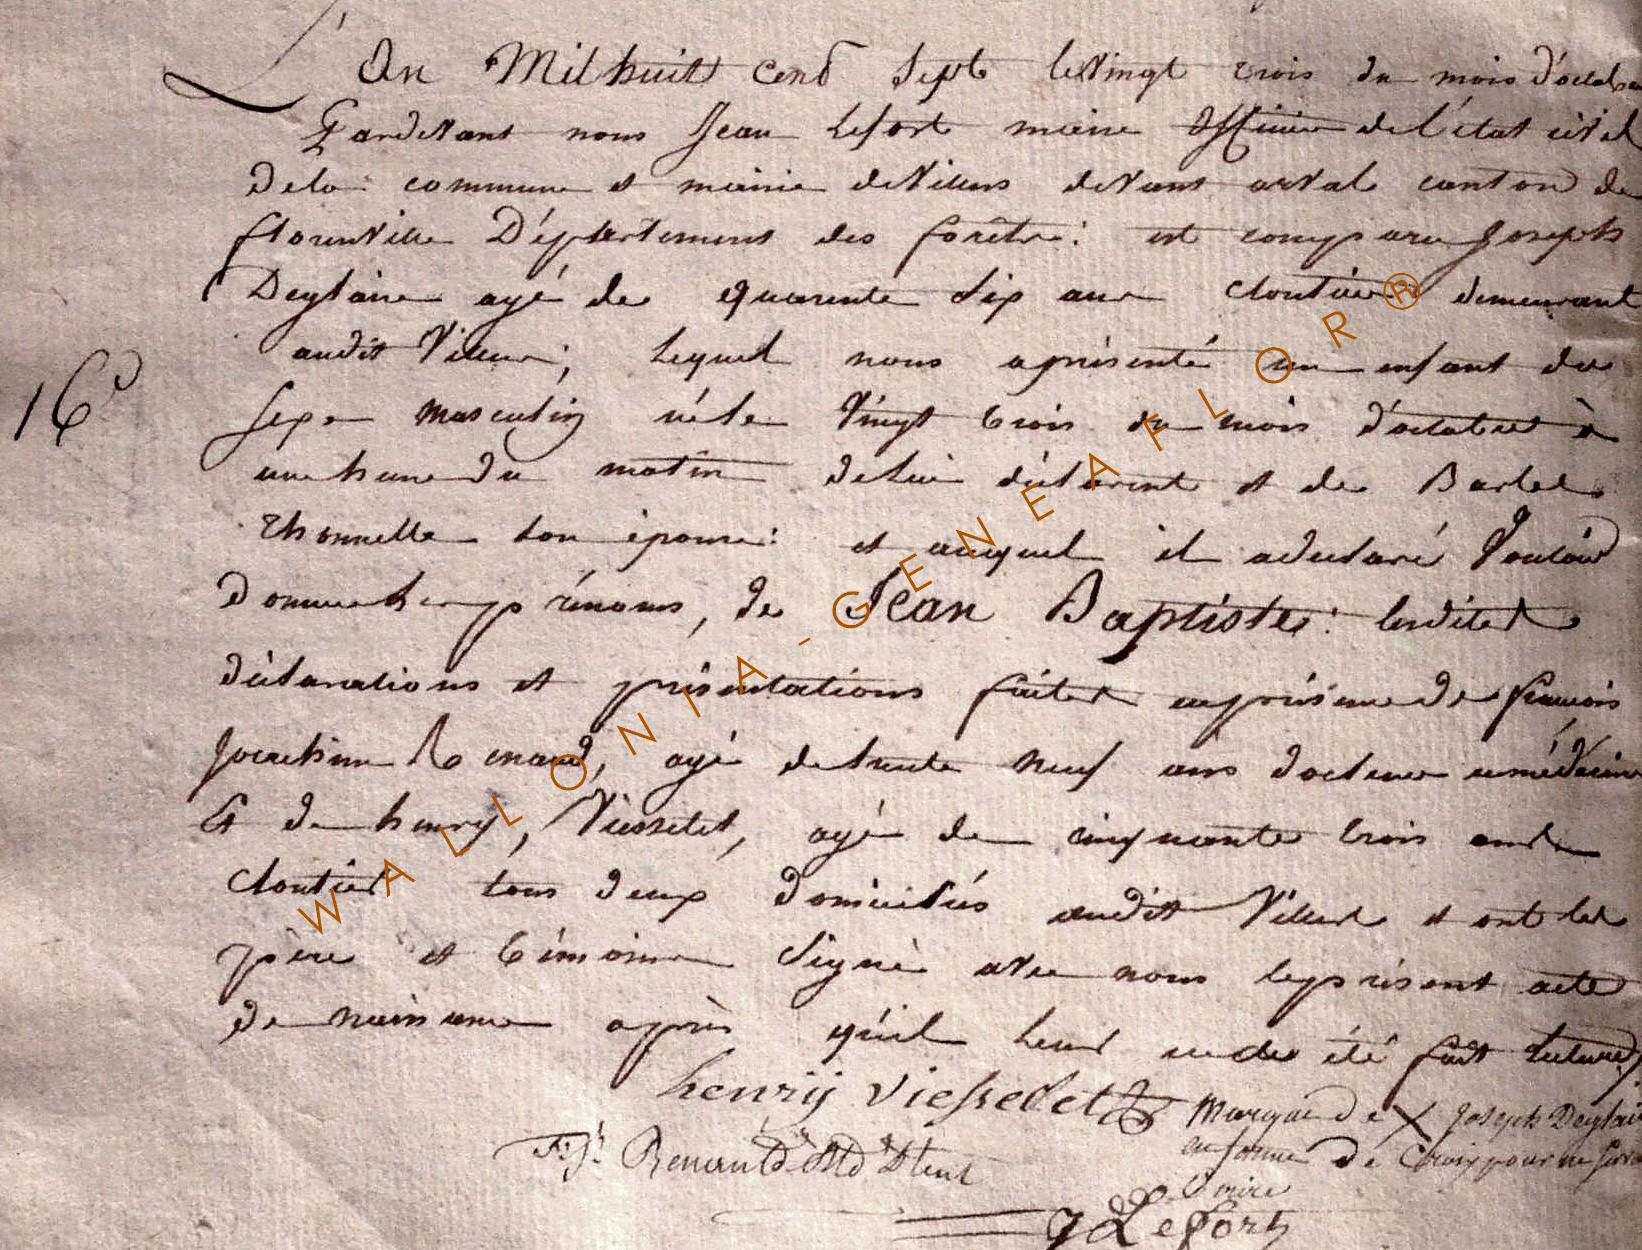 L'An Mil huit cend Sept le Vingt trois du mois d'octobre
Pardevant nous Jean Lefort maire officier de l'état civil
de la commune et mairie de Villers devant orval canton de
florenville Département des forêts: est comparu Joseph
Deglaire agé de quarente six ans cloutier demeurant
audit Villers; lequel nous a présenté un enfant du
sexe masculin né le Vingt trois du mois d'octobre à
une heure du matin de lui déclarent et de Barbe
Thonnelle son épouse: et auquel il a declaré Vouloir
donner les prénoms, de Jean Baptiste: lesdites
déclarations et présentations faites en présence de francois
Joachim Renaud, agé de trente neuf ans docteur en médecine
et de henry, Viesselet, agé de cinquante trois ans
cloutier tous deux domiciliés audit Villers et ont les
père et témoins signé avec nous le présent acte
de naissance après qu'il leur en a été fait lecture
16e
henrij viesselet
Marque de X Joseph Deglaire
en forme de Croix pour ne
F: J: Renauld
maire
J Lefort
WALLONIA-GENEAFLOR®